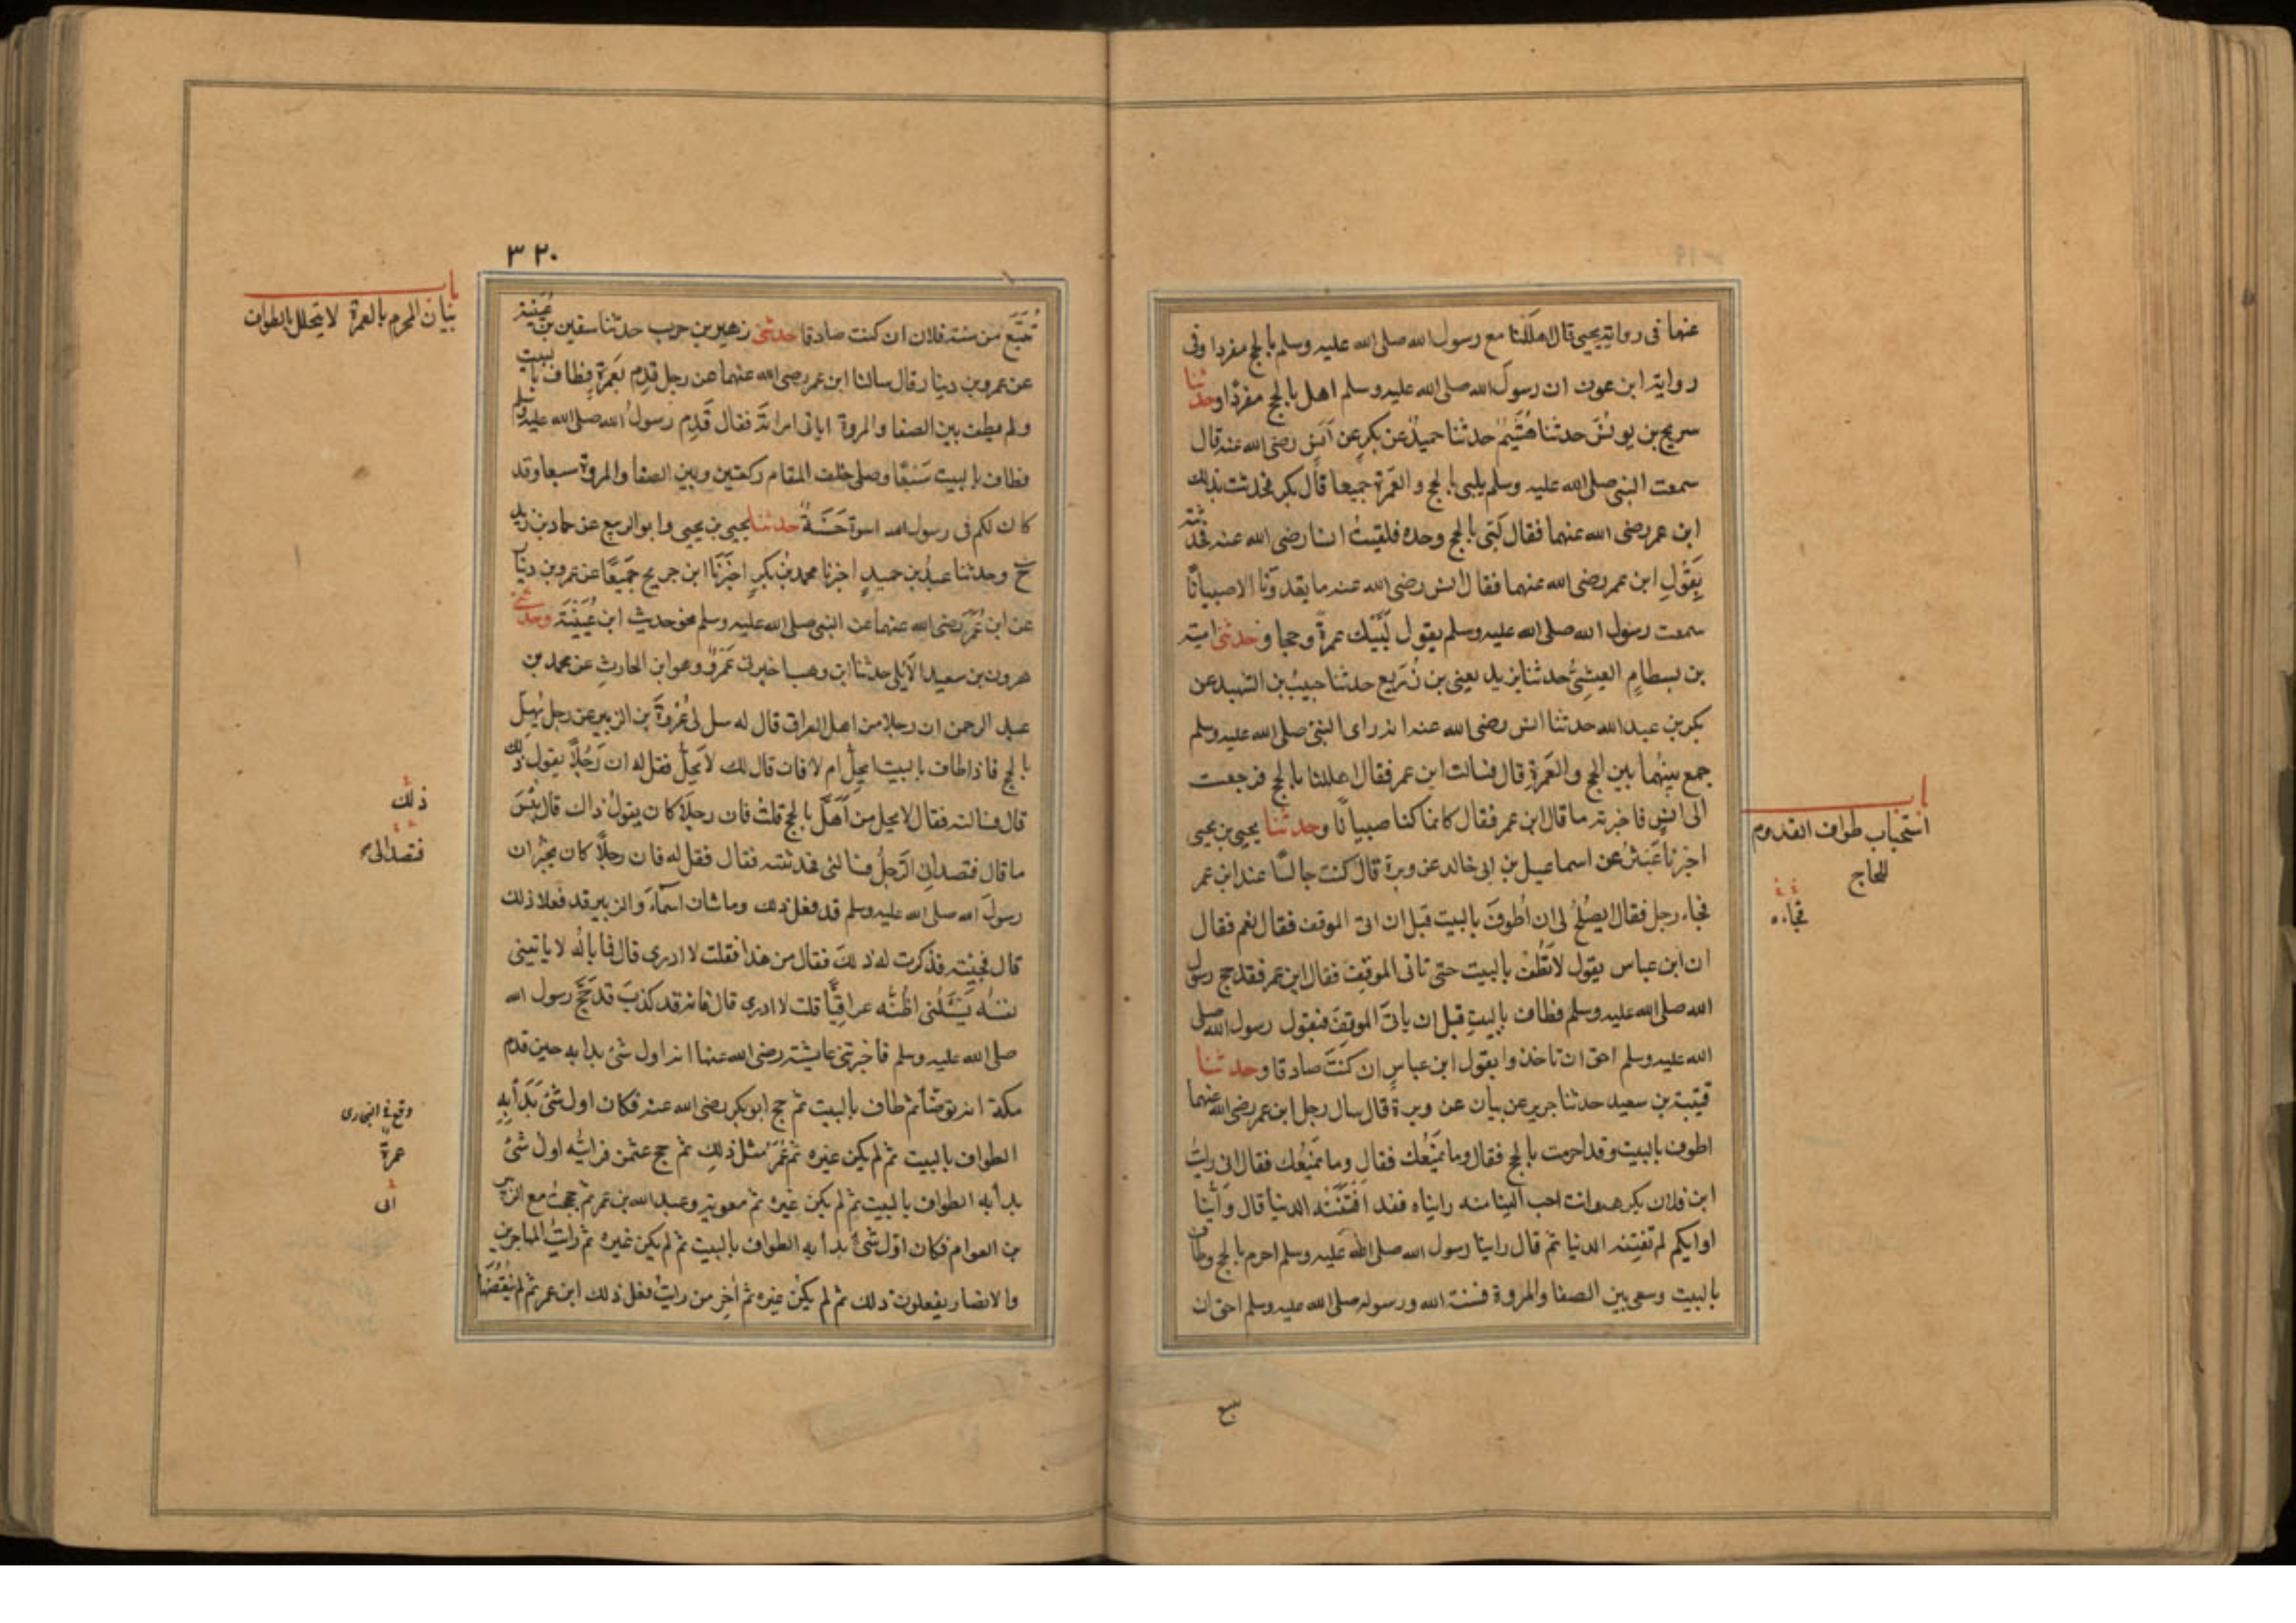 عنهما فى رواية يحيى قال اهللنا مع رسول الله صلى الله عليه وسلم بالحج مفردا وفى
رواية ابن عون ان رسول الله صلى الله عليه وسلم اهل بالحج مفردا وحدثنا
سريج بن يونس حدثنا هشيم حدثنا حميد عن بكر عن انس رضى الله عنه قال
سمعت النبى صلى الله عليه وسلم يلبى بالحج والعمرة جميعا قال بكر فحدثت بذلك
ابن عمر رضى الله عنهما فقال لبى بالحج وحده فلقيت انسا رضى الله عنه فحدثته
بقول ابن عمر رضى الله عنهما فقال انس رضى الله عنه ما يعدوننا الا صبيانا
سمعت رسول الله صلى الله عليه وسلم يقول لبيك عمرة وحجا وحدثنى امية
بن بسطام العيشى حدثنا يزيد يعنى بن زريع حدثنا حبيب بن الشهيد عن
بكر بن عبد الله حدثنا انس رضى الله عنه انه راى النبى صلى الله عليه وسلم
جمع بينهما بين الحج والعمرة قال فسالت ابن عمر فقال اهللنا بالحج فرجعت
الى انس فاخبرته ما قال ابن عمر فقال كانما كنا صبيانا وحدثنا يحيى بن يحيى
باب
استحباب طواف القدوم
للحاج
اخبرنا عبثر عن اسماعيل بن ابى خالد عن وبرة قال كنت جالسا عند ابن عمر
فجاء رجل فقال ايصلح لى ان اطوف بالبيت قبل ان اتى الموقف فقال نعم فقال
فجاءه
ان ابن عباس يقول لا تطف بالبيت حتى تاتى الموقف فقال ابن عمر فقد حج رسول
الله صلى الله عليه وسلم فطاف بالبيت قبل ان ياتى الموقف فبقول رسول الله صلى
الله عليه وسلم احق ان تاخذ وا بقول ابن عباس ان كنت صادقا وحدثنا
قتيبة بن سعيد حدثنا جرير عن بيان عن وبرة قال سال رجل ابن عمر رضى الله عنهما
اطوف بالبيت وقد احرمت بالحج فقال وما يمنعك فقال وما يمنعك فقال انى رايت
ابن فلان يكرهه وانت احب الينا منه رايناه فقد افتتنته الدنيا قال واينا
او ايكم لم تفتنه الدنيا ثم قال راينا رسول الله صلى الله عليه وسلم احرم بالحج وطاف
بالبيت وسعى بين الصفا والمروة فسنة الله ورسوله صلى الله عليه وسلم احق ان
٣٢٠
تتبع من سنة فلان ان كنت صادقا حدثنى زهير بن حرب حدثنا سفين بن عيينة
باب
بيان المحرم بالعمرة لا يتحلل بالطواف
عن عمرو بن دينار قال سالنا ابن عمر رضى الله عنهما عن رجل قدم بعمرة فطاف بالبيت
ولم يطف بين الصفا والمروة اياتى امراته فقال قدم رسول الله صلى الله عليه وسلم
فطاف بالبيت سبعا وصلى خلف المقام ركعتين وبين الصفا والمروة سبعا وقد
كان لكم فى رسول الله اسوة حسنة حدثنا يحيى بن يحيى وابو الربيع عن حماد بن زيد
ح وحدثنا عبد بن حميد اخبرنا محمد بن بكر اخبرنا ابن جريج جميعا عن عمرو بن دينار
عن ابن عمر رضى الله عنهما عن النبى صلى الله عليه وسلم نحو حديث ابن عيينة وحدثنى
هرون بن سعيد الايلى حدثنا ابن وهب اخبرنى عمرو وهو ابن الحارث عن محمد بن
عبد الرحمن ان رجلا من اهل العراق قال له سل لى عروة بن الزبير عن رجل يهل
بالحج فاذا طاف بالبيت ايحل ام لا فان قال لك لا يحل فقل له ان رجلا يقول ذلك
قال فسالته فقال لا يحل من اهل بالحج قلت فان رجلا كان يقول ذاك قال بئس
ذلك
ما قال فتصدانى الرجل فسالنى فحدثته فقال فقل له فان رجلا كان يخبر ان
فتصدالى
رسول الله صلى الله عليه وسلم قد فعل ذلك وما شان اسماء والزبير قد فعلا ذلك
قال فجئته فذكرت له ذلك فقال من هذا فقلت لا ادرى قال فما باله لا ياتينى
بنفسه يسئلنى اظنه عراقيا قلت لا ادرى قال فانه قد كذب قد حج رسول الله
صلى الله عليه وسلم فاخبرتنى عايشة رضى الله عنها انه اول شئ بدا به حين قدم
مكة انه توضأ ثم طاف بالبيت ثم حج ابو بكر رضى الله عنه فكان اول شئ بدأ به
وقع فى البخارى
عمرة
الطواف بالبيت ثم لم يكن غيره ثم عمر مثل ذلك ثم حج عثمن فرايته اول شئ
بدأ به الطواف بالبيت ثم لم يكن غيره ثم معوية وعبد الله بن عمر ثم حججت مع الزبير
ابى
بن العوام فكان اول شئ بدأ به الطواف بالبيت ثم لم يكن غيره ثم رايت المهاجرين
والانصار يفعلون ذلك ثم لم يكن غيره ثم اخر من رايت فعل ذلك ابن عمر ثم لم ينقضها